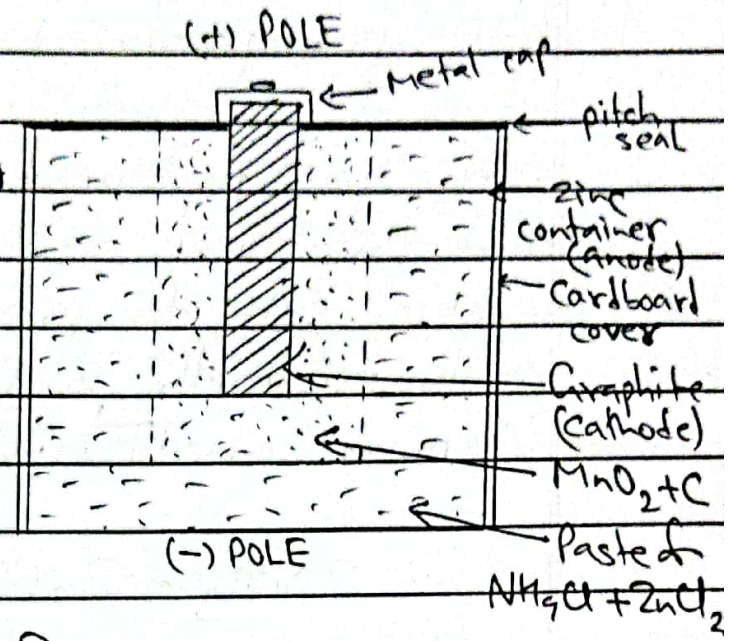 (+) POLE
Metal cap
pitch
seal
zinc
container
(anode)
Cardboard
cover
Graphite
(cathode)
MnO₂+C
(-) POLE
Paste of
NH₄Cl + ZnCl₂